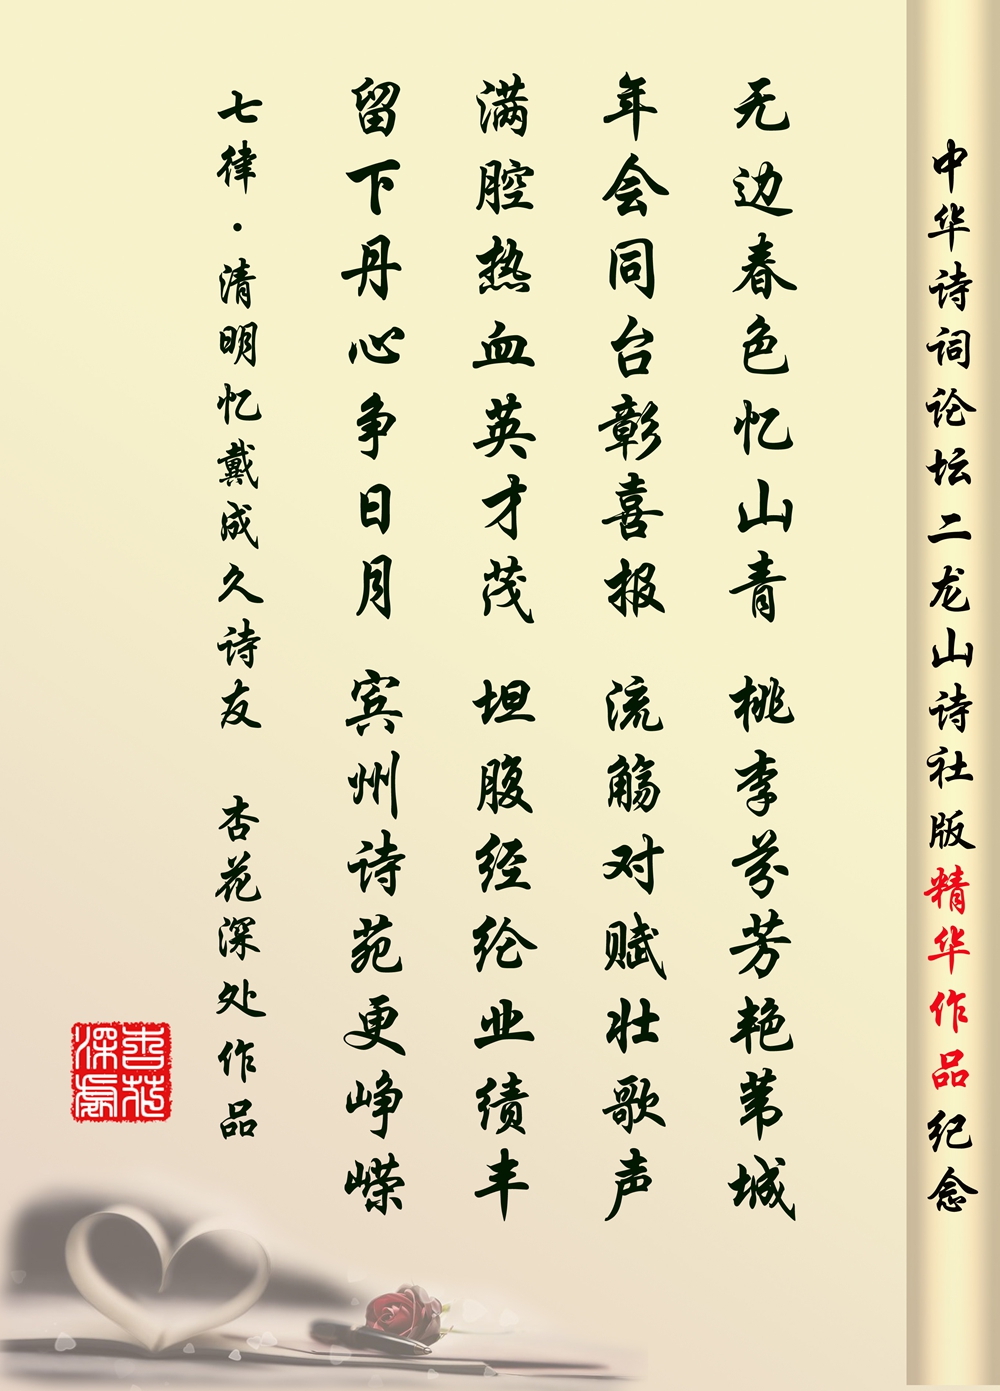 中华诗词论坛二龙山诗社版精华作品纪念
无边春色忆山青 桃李芬芳艳苇城
年会同台彰喜报 流觞对赋壮歌声
满腔热血英才茂 坦腹经纶业绩丰
留下丹心争日月 宾州诗苑更峥嵘
七律·清明忆戴成久诗友 杏花深处作品
杏花
深處